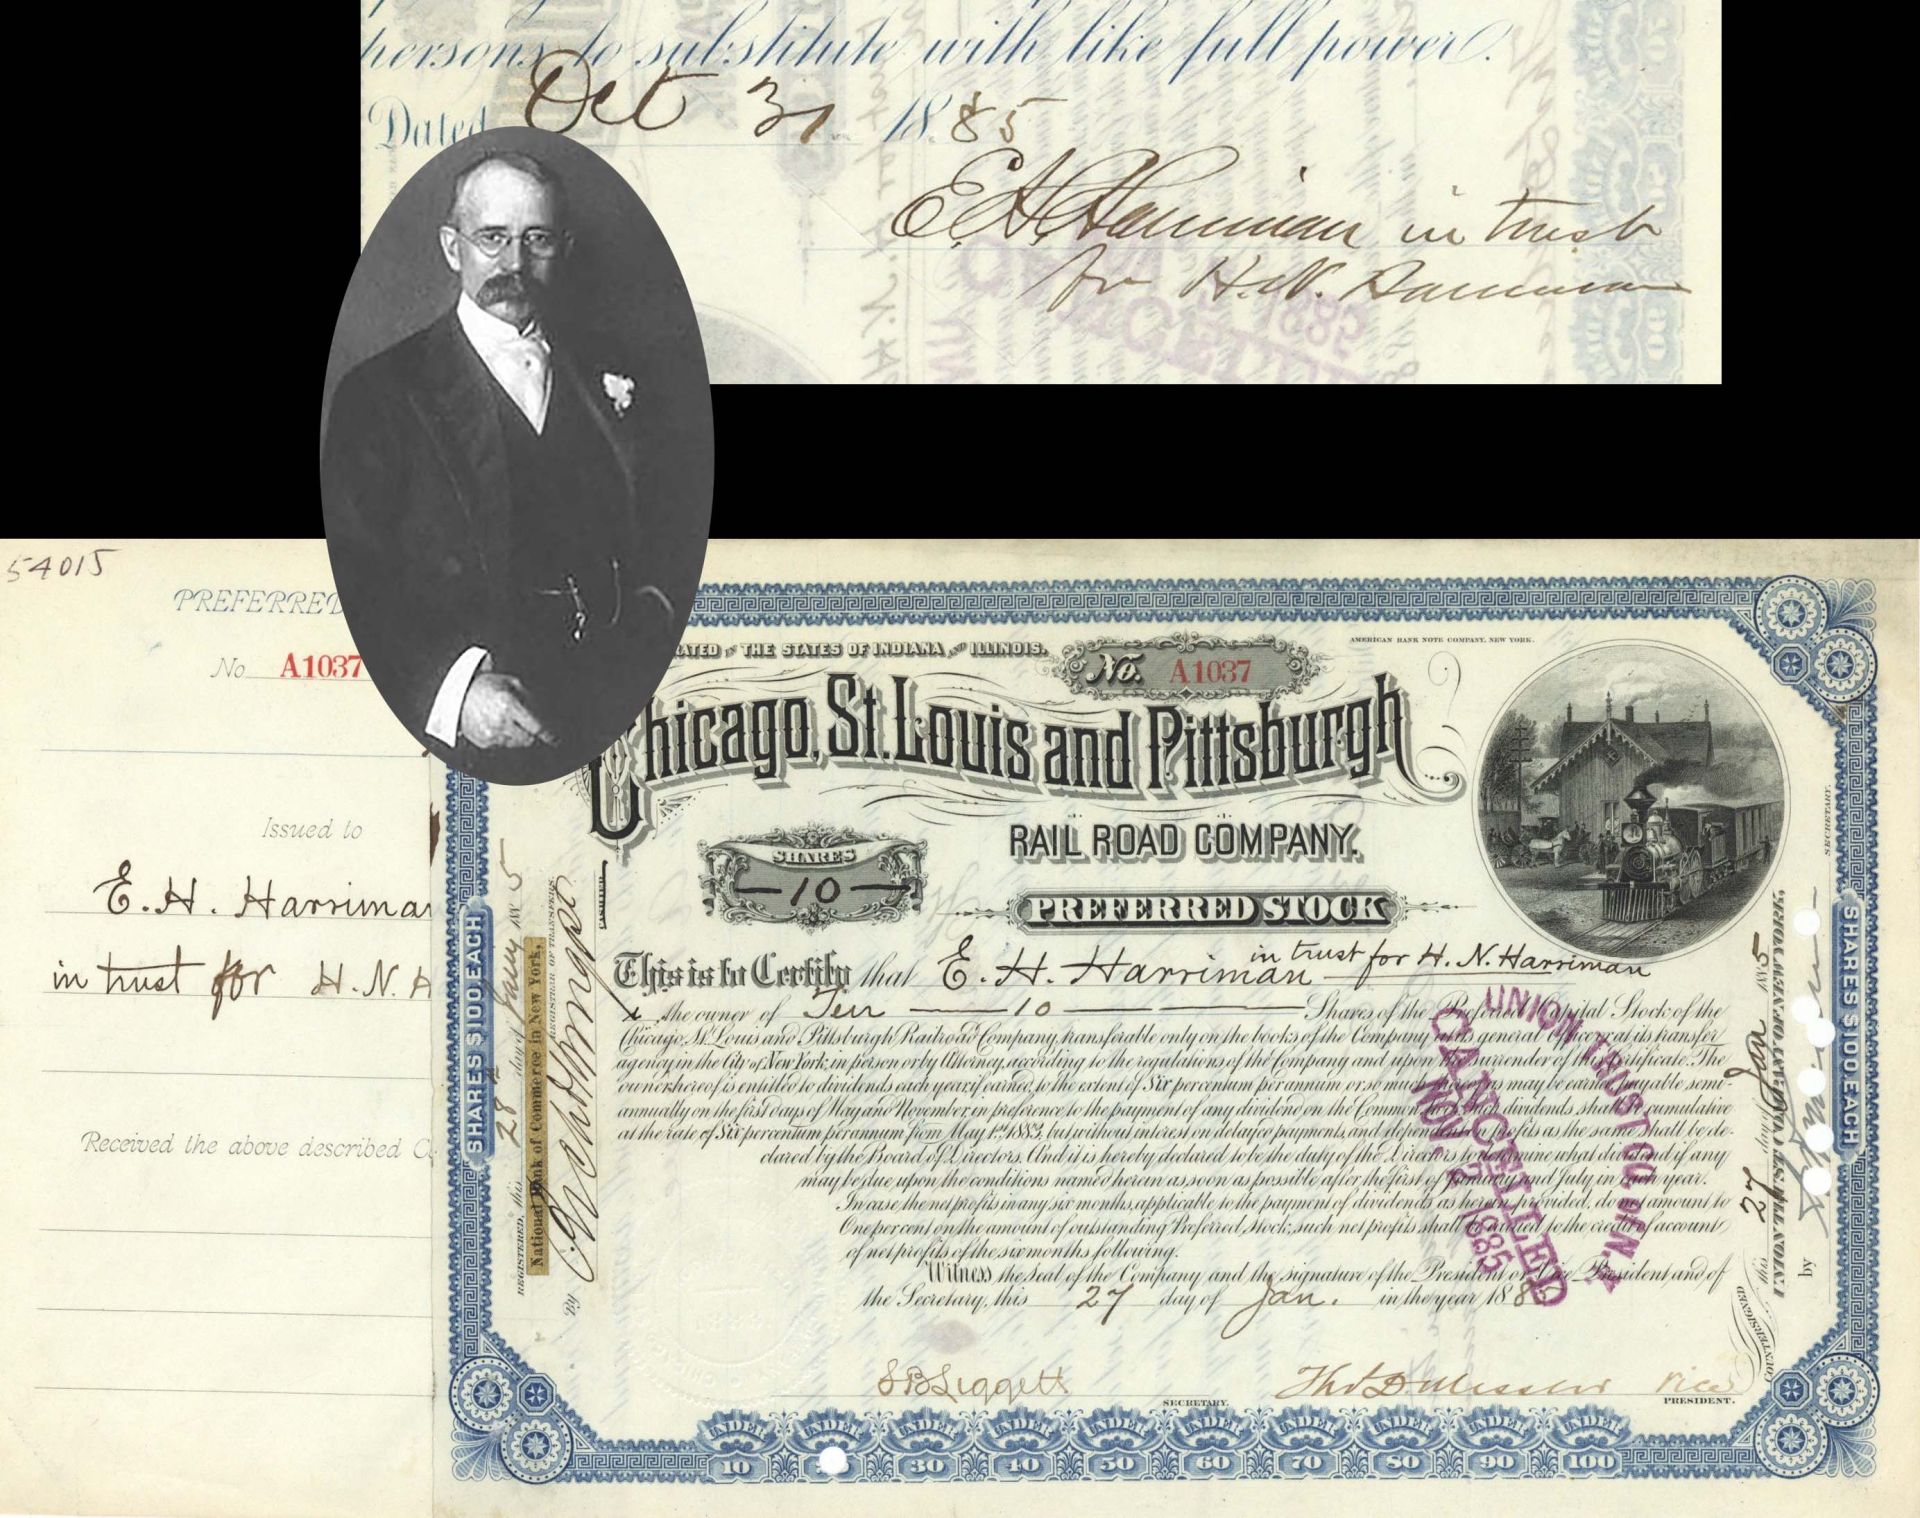 persons to substitute with like full power.
Dated Oct 31 1885
E. H. Harriman in trust
for H. N. Harriman
CANCELLED
1885
54015
PREFERRED
No A1037
Issued to
E. H. Harriman
in trust for H. N. H
Received the above described C
THE STATES OF INDIANA AND ILLINOIS.
No. A1037
AMERICAN BANK NOTE COMPANY, NEW YORK.
Chicago, St. Louis and Pittsburgh
RAIL ROAD COMPANY.
SHARES
10
PREFERRED STOCK
This is to Certify that E. H. Harriman in trust for H. N. Harriman
is the owner of Ten 10 Shares of the Preferred Capital Stock of the
Chicago, St. Louis and Pittsburgh Railroad Company, transferable only on the books of the Company at its general Office or at its transfer
agency in the City of New York, in person or by Attorney, according to the regulations of the Company and upon the surrender of this Certificate. The
owner hereof is entitled to dividends each year, if earned, to the extent of Six per centum per annum or so much thereof as may be earned, payable semi-
annually on the first days of May and November, in preference to the payment of any dividend on the Common Stock, such dividends shall be cumulative
at the rate of Six per centum per annum from May 1st, 1883, but without interest on delayed payments, and dependent on profits as the same shall be de-
clared by the Board of Directors. And it is hereby declared to be the duty of the Directors to determine what dividend if any
may be due upon the conditions named herein as soon as possible after the first of January and July in each year.
In case the net profits in any six months, applicable to the payment of dividends as herein provided, do not amount to
One per cent on the amount of outstanding Preferred Stock, such net profits shall be carried to the credit of account
of net profits of the six months following.
Witness the Seal of the Company and the signature of the President or Vice President and of
the Secretary, this 27 day of Jan. in the year 188
S B Liggett
SECRETARY.
Thos D Messler Vice
PRESIDENT.
SHARES $100 EACH
REGISTERED, this 28th day of Jany 1885
National Bank of Commerce in New York,
REGISTRAR OF TRANSFERS.
By
CASHIER
UNION TRUST CO. OF N.Y.
CANCELLED
NOV 2 1885
COUNTERSIGNED this 27 day of Jan 1885
UNION TRUST COMPANY OF NEW YORK.
by
SECRETARY.
SHARES $100 EACH
UNDER UNDER UNDER UNDER UNDER UNDER UNDER UNDER UNDER UNDER
10 30 40 50 60 70 80 90 100